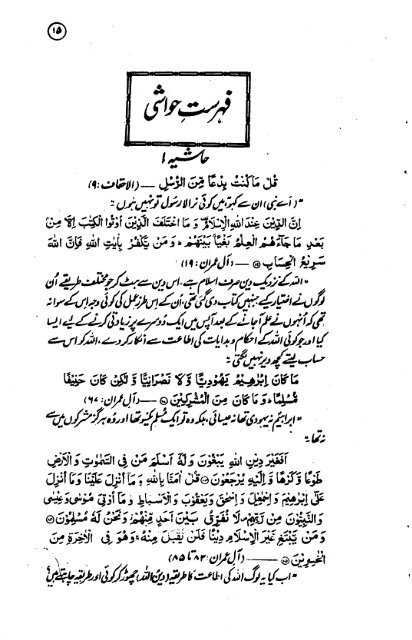 ۱۵
فہرستِ حواشی
حاشیہ ۱
قُلْ مَا كُنْتُ بِدْعًا مِّنَ الرُّسُلِ ــــ (الاحقاف : ۹)
"(اے نبی) ان سے کہو، میں کوئی نرالا رسول تو نہیں ہوں"
اِنَّ الدِّيْنَ عِنْدَ اللّٰهِ الْاِسْلَامُ وَمَا اخْتَلَفَ الَّذِيْنَ اُوْتُوا الْكِتٰبَ اِلَّا مِنْۢ
بَعْدِ مَا جَآءَهُمُ الْعِلْمُ بَغْيًۢا بَيْنَهُمْ ؕ وَمَنْ يَّكْفُرْ بِاٰيٰتِ اللّٰهِ فَاِنَّ اللّٰهَ
سَرِيْعُ الْحِسَابِ ۝ ــــ (آل عمران : ۱۹)
"اللہ کے نزدیک دین صرف اسلام ہے۔ اس دین سے ہٹ کر جو مختلف طریقے اُن
لوگوں نے اختیار کیے جنہیں کتاب دی گئی تھی، اُن کے اس طرزِ عمل کی کوئی وجہ اِس کے سوا نہ
تھی کہ اُنہوں نے علم آجانے کے بعد آپس میں ایک دُوسرے پر زیادتی کرنے کے لیے ایسا
کیا اور جو کوئی اللہ کے احکام و ہدایات کی اطاعت سے انکار کر دے، اللہ کو اس سے
حساب لیتے کچھ دیر نہیں لگتی"
مَا كَانَ اِبْرٰهِيْمُ يَهُوْدِيًّا وَّلَا نَصْرَانِيًّا وَّلٰكِنْ كَانَ حَنِيْفًا
مُّسْلِمًا ؕ وَمَا كَانَ مِنَ الْمُشْرِكِيْنَ ۝ ــــ (آل عمران : ۶۷)
"ابراہیمؑ نہ یہودی تھا نہ عیسائی، بلکہ وہ تو ایک مُسلمِ یکسُو تھا اور وُہ ہرگز مشرکوں میں سے
نہ تھا"
اَفَغَيْرَ دِيْنِ اللّٰهِ يَبْغُوْنَ وَلَهٗٓ اَسْلَمَ مَنْ فِي السَّمٰوٰتِ وَالْاَرْضِ
طَوْعًا وَّكَرْهًا وَّاِلَيْهِ يُرْجَعُوْنَ ۝ قُلْ اٰمَنَّا بِاللّٰهِ وَمَآ اُنْزِلَ عَلَيْنَا وَمَآ اُنْزِلَ
عَلٰٓى اِبْرٰهِيْمَ وَاِسْمٰعِيْلَ وَاِسْحٰقَ وَيَعْقُوْبَ وَالْاَسْبَاطِ وَمَآ اُوْتِيَ مُوْسٰى وَعِيْسٰى
وَالنَّبِيُّوْنَ مِنْ رَّبِّهِمْ ۪ لَا نُفَرِّقُ بَيْنَ اَحَدٍ مِّنْهُمْ ۫ وَنَحْنُ لَهٗ مُسْلِمُوْنَ ۝
وَمَنْ يَّبْتَغِ غَيْرَ الْاِسْلَامِ دِيْنًا فَلَنْ يُّقْبَلَ مِنْهُ ۚ وَهُوَ فِي الْاٰخِرَةِ مِنَ
الْخٰسِرِيْنَ ۝ ــــ (آل عمران : ۸۳ تا ۸۵)
"اب کیا یہ لوگ اللہ کی اطاعت کا طریقہ (دین اللہ) چھوڑ کر کوئی اور طریقہ چاہتے ہیں؟